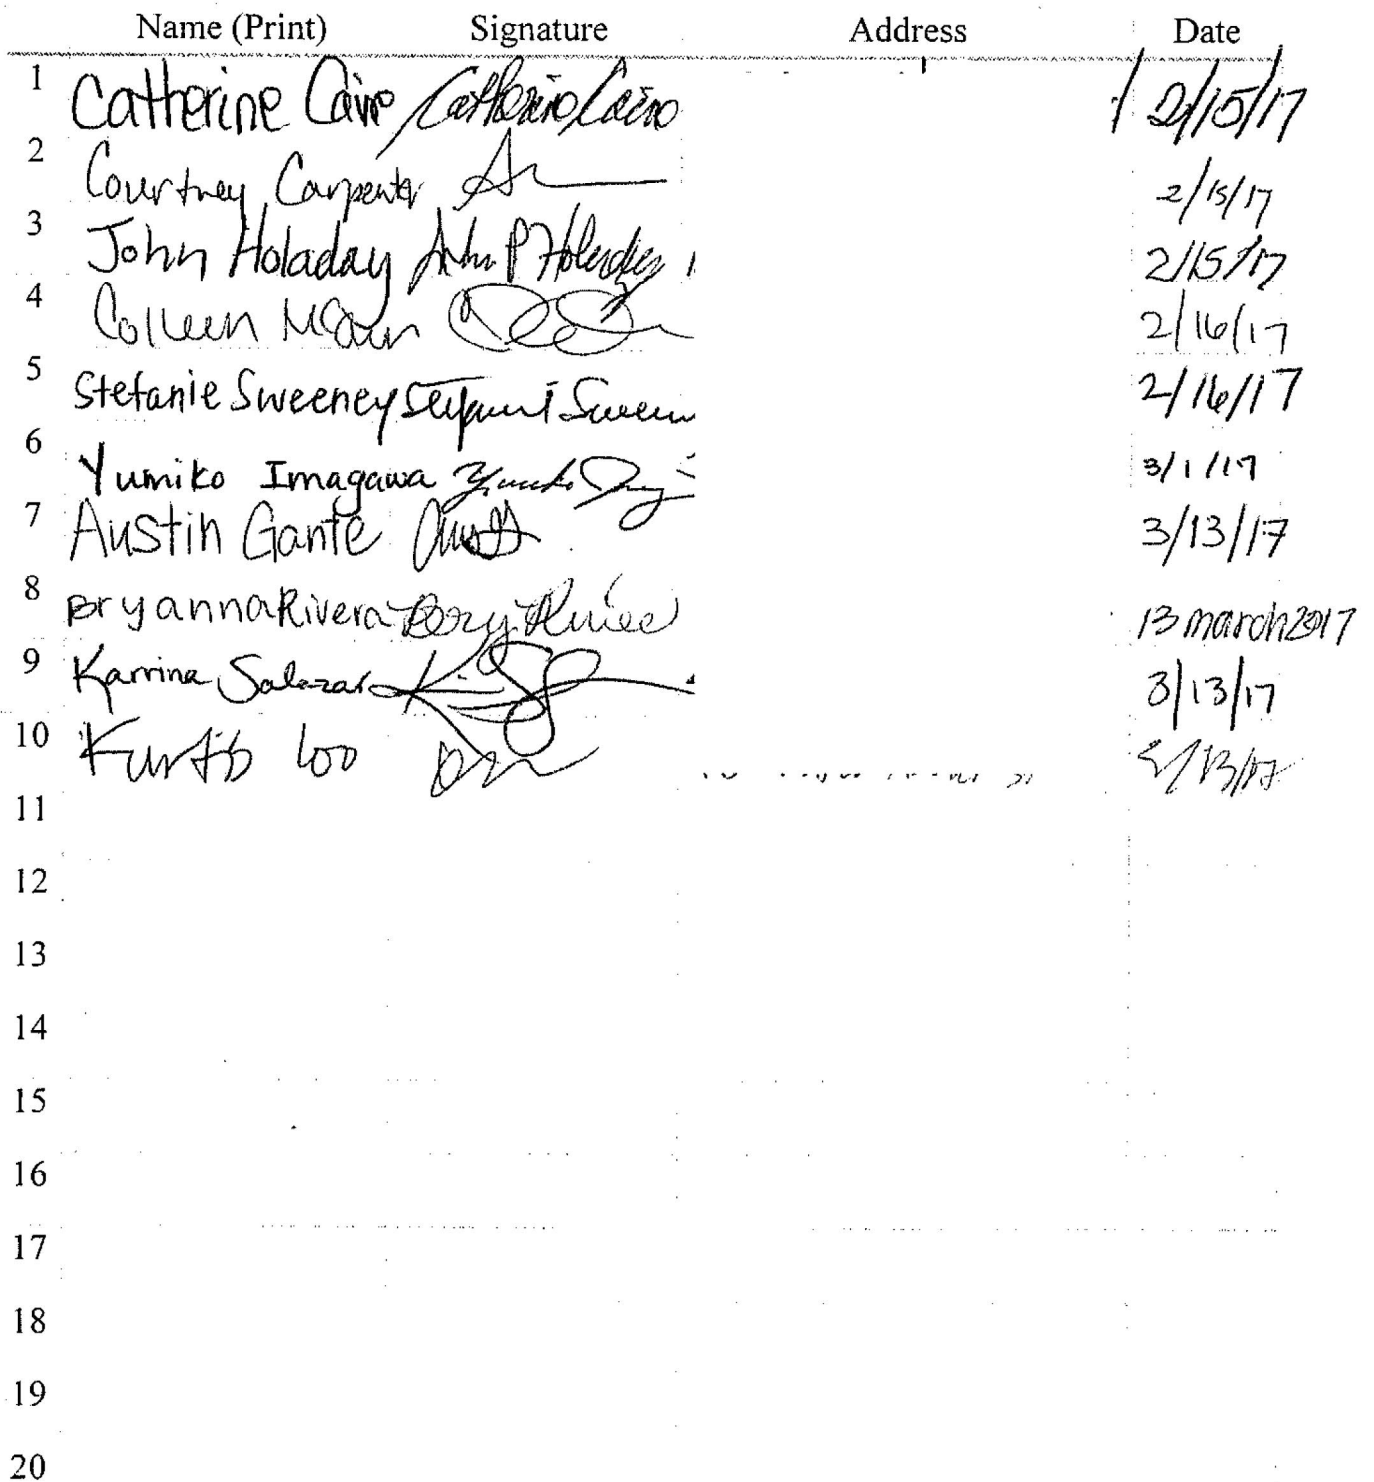 Name (Print) Signature Address Date
1 Catherine Cairo Catherine Cairo 2/15/17
2 Courtney Carpenter 2/15/17
3 John Holaday John P Holaday 2/15/17
4 Colleen 2/16/17
5 Stefanie Sweeney 2/16/17
6 Yumiko Imagawa 3/1/17
7 Austin Gante 3/13/17
8 Bryanna Rivera 13 march 2017
9 Karrina Salazar 3/13/17
10 Kurtis Loo 3/13/17
11
12
13
14
15
16
17
18
19
20